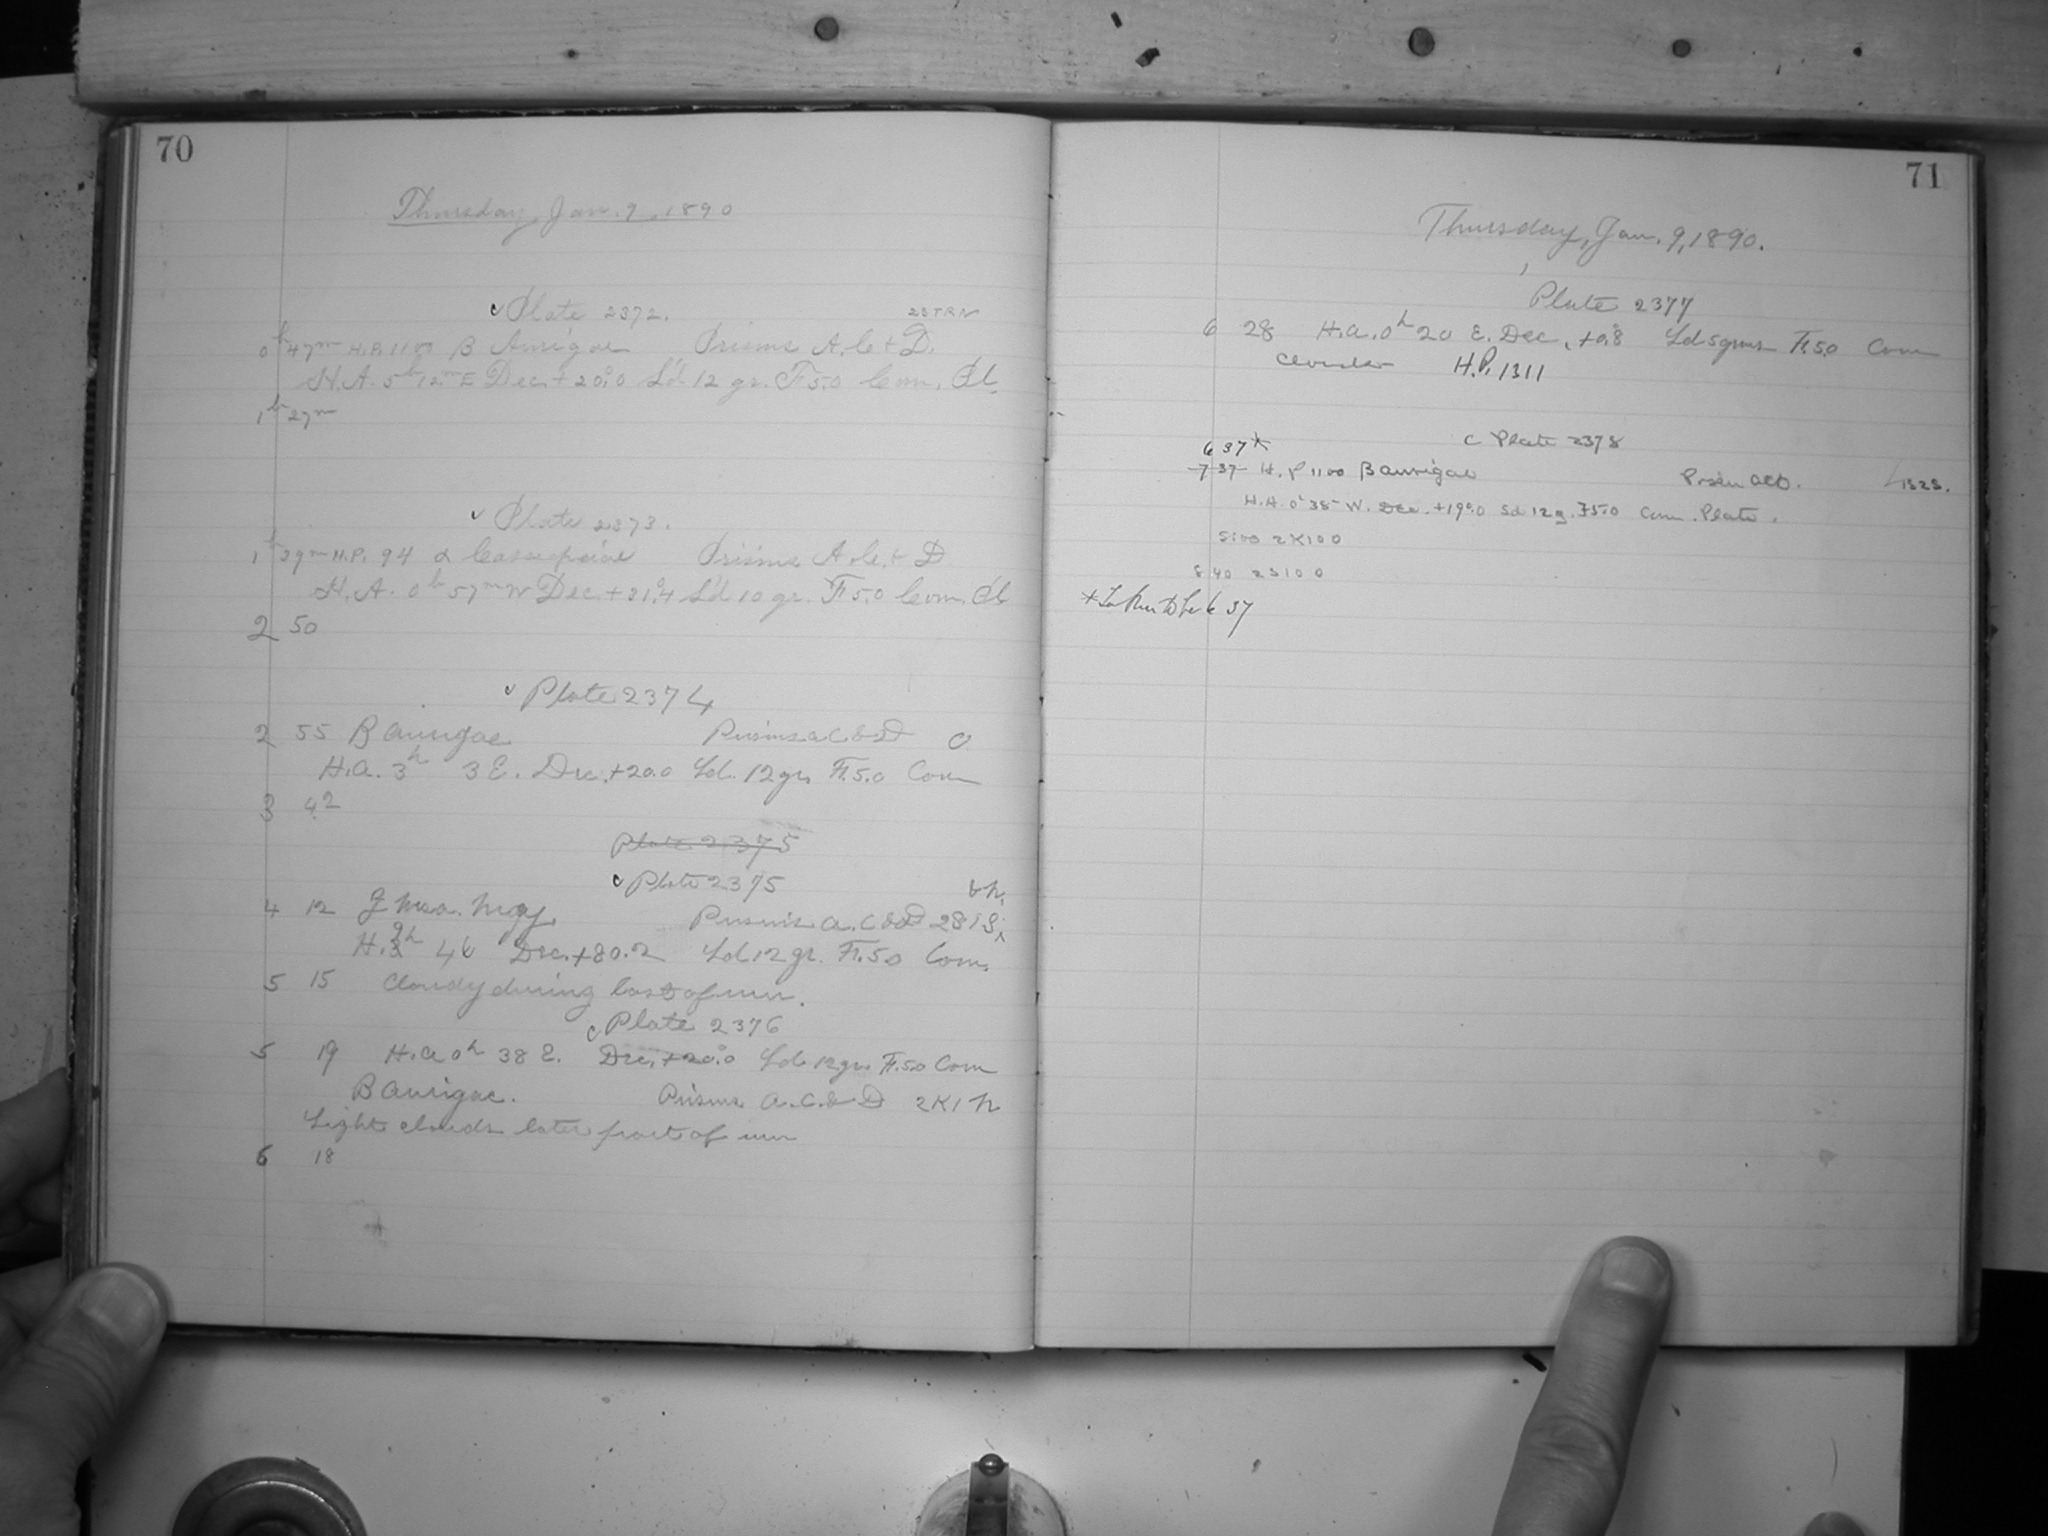 70
Thursday, Jan. 9, 1890
Plate 2372.
0h 47m H.P. 1100 β Aurigae Prisms A, C, + D.
H.A. 5h 12m E Dec. +20°.0 S'd 12 gr. F 5.0 Com. Pl.
1h 27m
Plate 2373.
1h 29m H.P. 94 α Cassiopeiae Prisms A, C, + D
H.A. 0h 57m W Dec. +31°.4 S'd 10 gr. F 5.0 Com. Pl.
2 50
Plate 2374
2 55 B Aurigae Prisms a C & D
H.a. 3h 3 E. Dec. +20.0 Sd. 12 gr. F. 5.0 Com
3 42
Plate 2375
Plate 2375
4 12 Prisms a. C & D
H. 46 Dec. +80.2 Sd 12 gr. F. 5.0 Com.
5 15 Cloudy during last of run.
Plate 2376
5 19 H.a 0h 38 E. Dec. +20.0 Sd. 12 gr. F. 5.0 Com
B Aurigae. Prisms a. C. & D
Light clouds later part of run
6 18
71
Thursday, Jan. 9, 1890.
Plate 2377
6 28 H.a. 0h 20 E. Dec. +0.8 Sd 5 gms F. 5.0 Com
H.P. 1311
6 37*
c Plate 2378
7 37 H.P 1100 B aurigae
H.A. 0h 35 W. Dec. +19°.0 Sd 12 g. F 5.0 Com. Plate.
8 40
* Taken to be 6 37